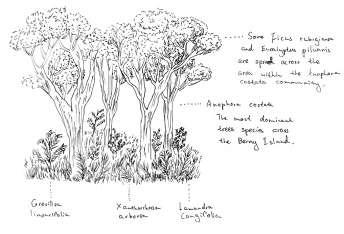 Some ficus rubiginosa
and Eucalyptus pilularis
are spread across the
area within the Anophora
costata community.
Anophora costata
The most dominant
trees species cross
the Berry Island.
Grevillea
linearifolia
Xanthorrhoea
arborea
Lomandra
Longifolia